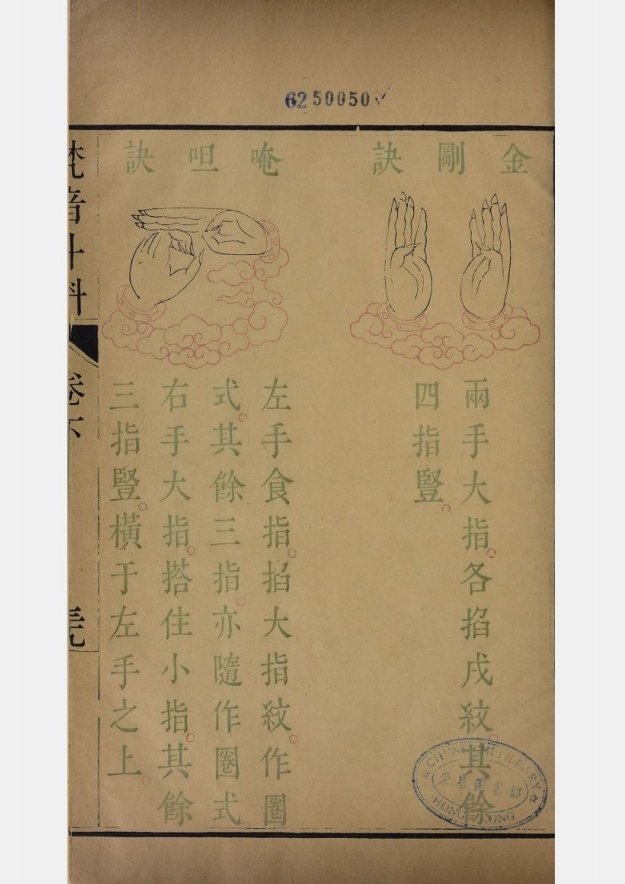 6250050
金剛訣
兩手大指各掐戌紋其餘
四指豎
唵呾訣
左手食指掐大指紋作圈
式其餘三指亦隨作圈式
右手大指搭住小指其餘
三指豎橫于左手之上
梵音斗科
卷下
CHUNG CHI LIBRARY
崇基圖書館
HONG KONG